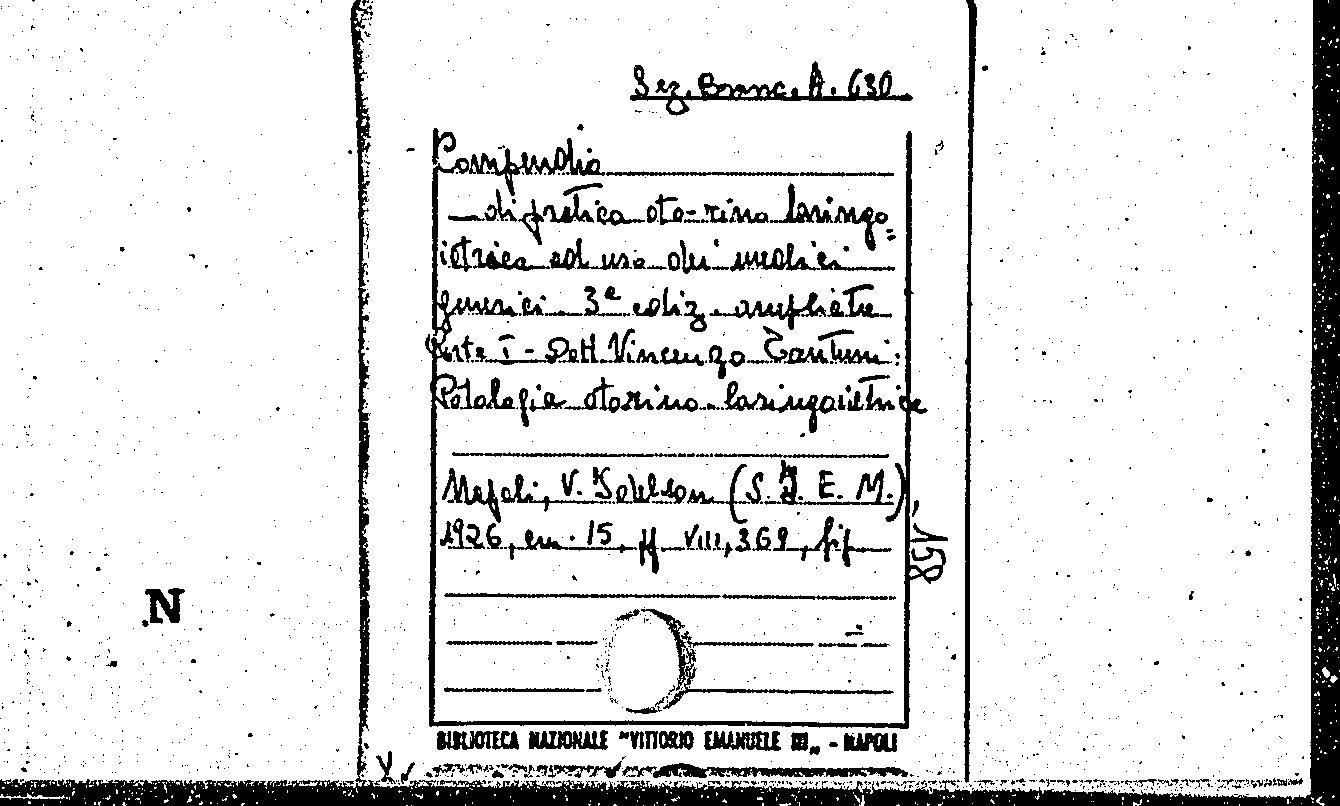 Sez. Branc. A. 630
Compendio
— di pratica oto-rino laringo=
iatrica ad uso dei medici
generici. 3ª ediz. ampliata
Parte I - Dott Vincenzo Tantuni:
Patologia otorino-laringoiatrica
Napoli, V. (S. E. M.)
1926, cm. 15, pp VIII, 369, fig.
158
N
BIBLIOTECA NAZIONALE "VITTORIO EMANUELE III„ - NAPOLI